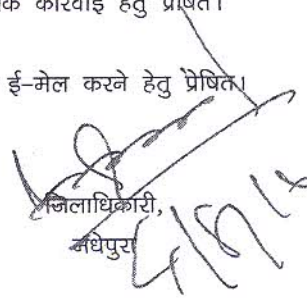 क कारवाई हेतु प्रेषित।
ई-मेल करने हेतु प्रेषित।
जिलाधिकारी,
मधेपुरा